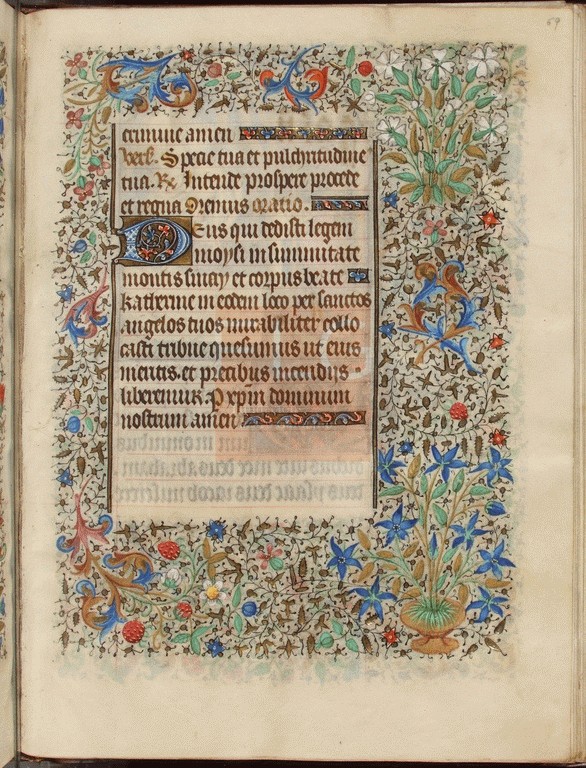 69
crimine amen
Vers. Specie tua et pulchritudine
tua. R. Intende prospere procede
et regna Oremus oratio.
Deus qui dedisti legem
moysi in summitate
montis sinay et corpus beate
katherine in eodem loco per sanctos
angelos tuos mirabiliter collo
casti tribue quesumus ut eius
meritis et precibus incendiis
liberemur. P xpm dominum
nostrum amen